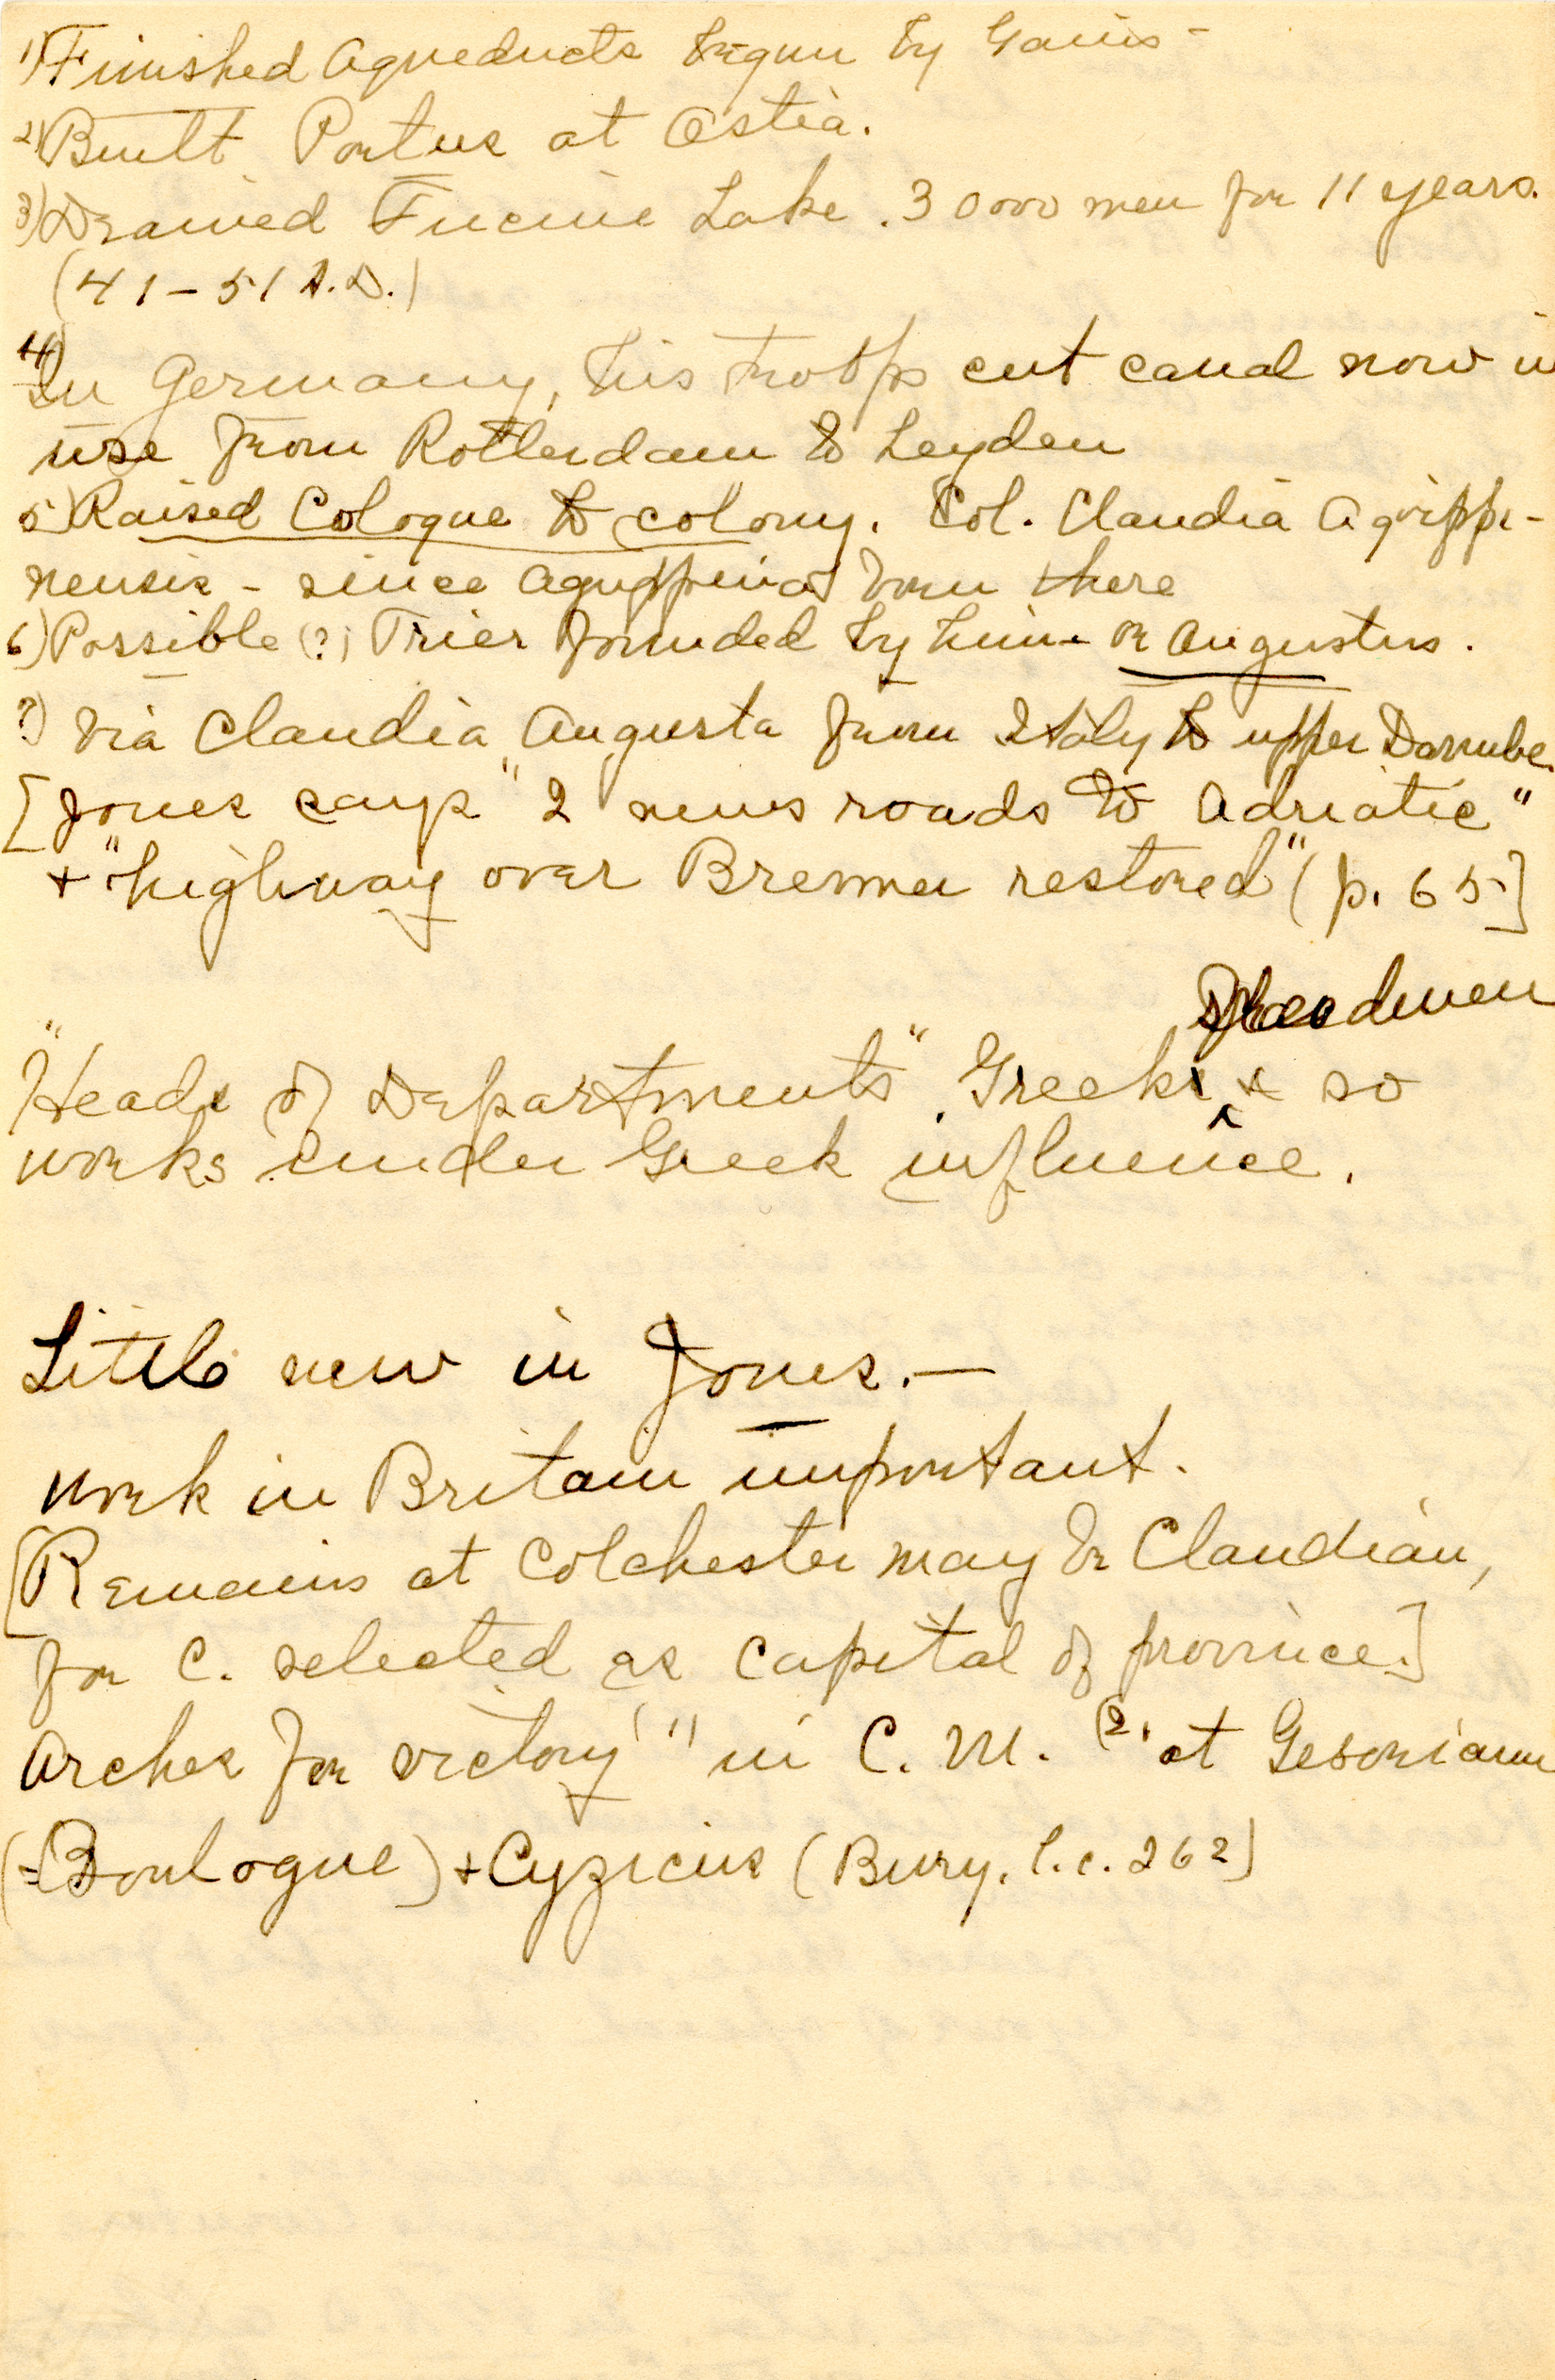 1) Finished Aqueducts begun by Gaius -
2) Built Portus at Ostia.
3) Drained Fucine Lake. 30000 men for 11 years.
(41-51 A.D.)
4) In Germany, his troops cut canal now in
use from Rotterdam to Leyden
5) Raised Cologne to colony. Col. Claudia Agrippi-
nensis - since Agrippina born there
6) Possible (?) Trier founded by him - or Augustus.
7) Via Claudia Augusta from Italy to upper Danube.
[Jones says "2 news roads to Adriatic"
+ "highway over Brenner restored" (p. 65]
freedmen
"Heads of Departments" Greeks + so
works under Greek influence.
Little new in Jones.—
Work in Britain important.
[Remains at Colchester may be Claudian,
for C. selected as capital of province.]
Arches for victory (1) in C. M. (2) at Gesoriacum
(=Boulogne) + Cyzicus (Bury, l.c. 262)